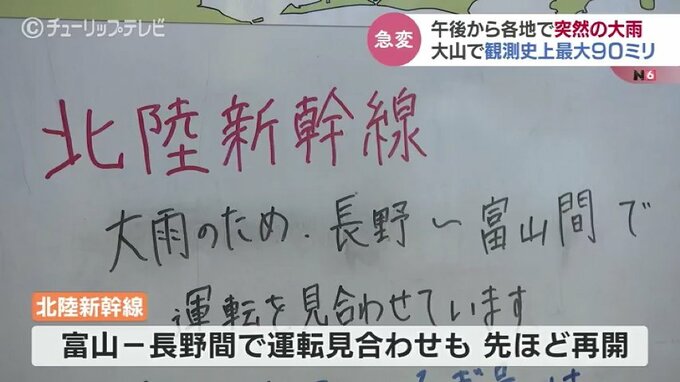 チューリップテレビ
急変
午後から各地で突然の大雨
大山で観測史上最大90ミリ
N6
北陸新幹線
大雨のため、長野~富山間で
運転を見合わせています
北陸新幹線
富山-長野間で運転見合わせも 先ほど再開